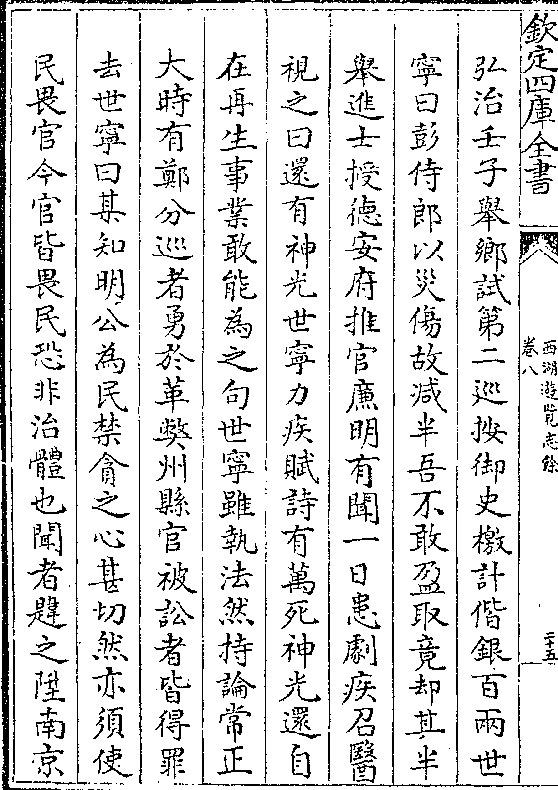 欽定四庫全書
西湖遊覽志餘
卷八
二十五
弘治壬子舉鄉試第二巡按御史檄計偕銀百兩世
寧曰彭侍郎以災傷故減半吾不敢盈取竟却其半
舉進士授德安府推官廉明有聞一日患劇疾召醫
視之曰還有神光世寧力疾賦詩有萬死神光還自
在再生事業敢能為之句世寧雖執法然持論常正
大時有鄭分巡者勇於革弊州縣官被訟者皆得罪
去世寧曰某知明公為民禁貪之心甚切然亦須使
民畏官今官皆畏民恐非治體也聞者韙之陞南京